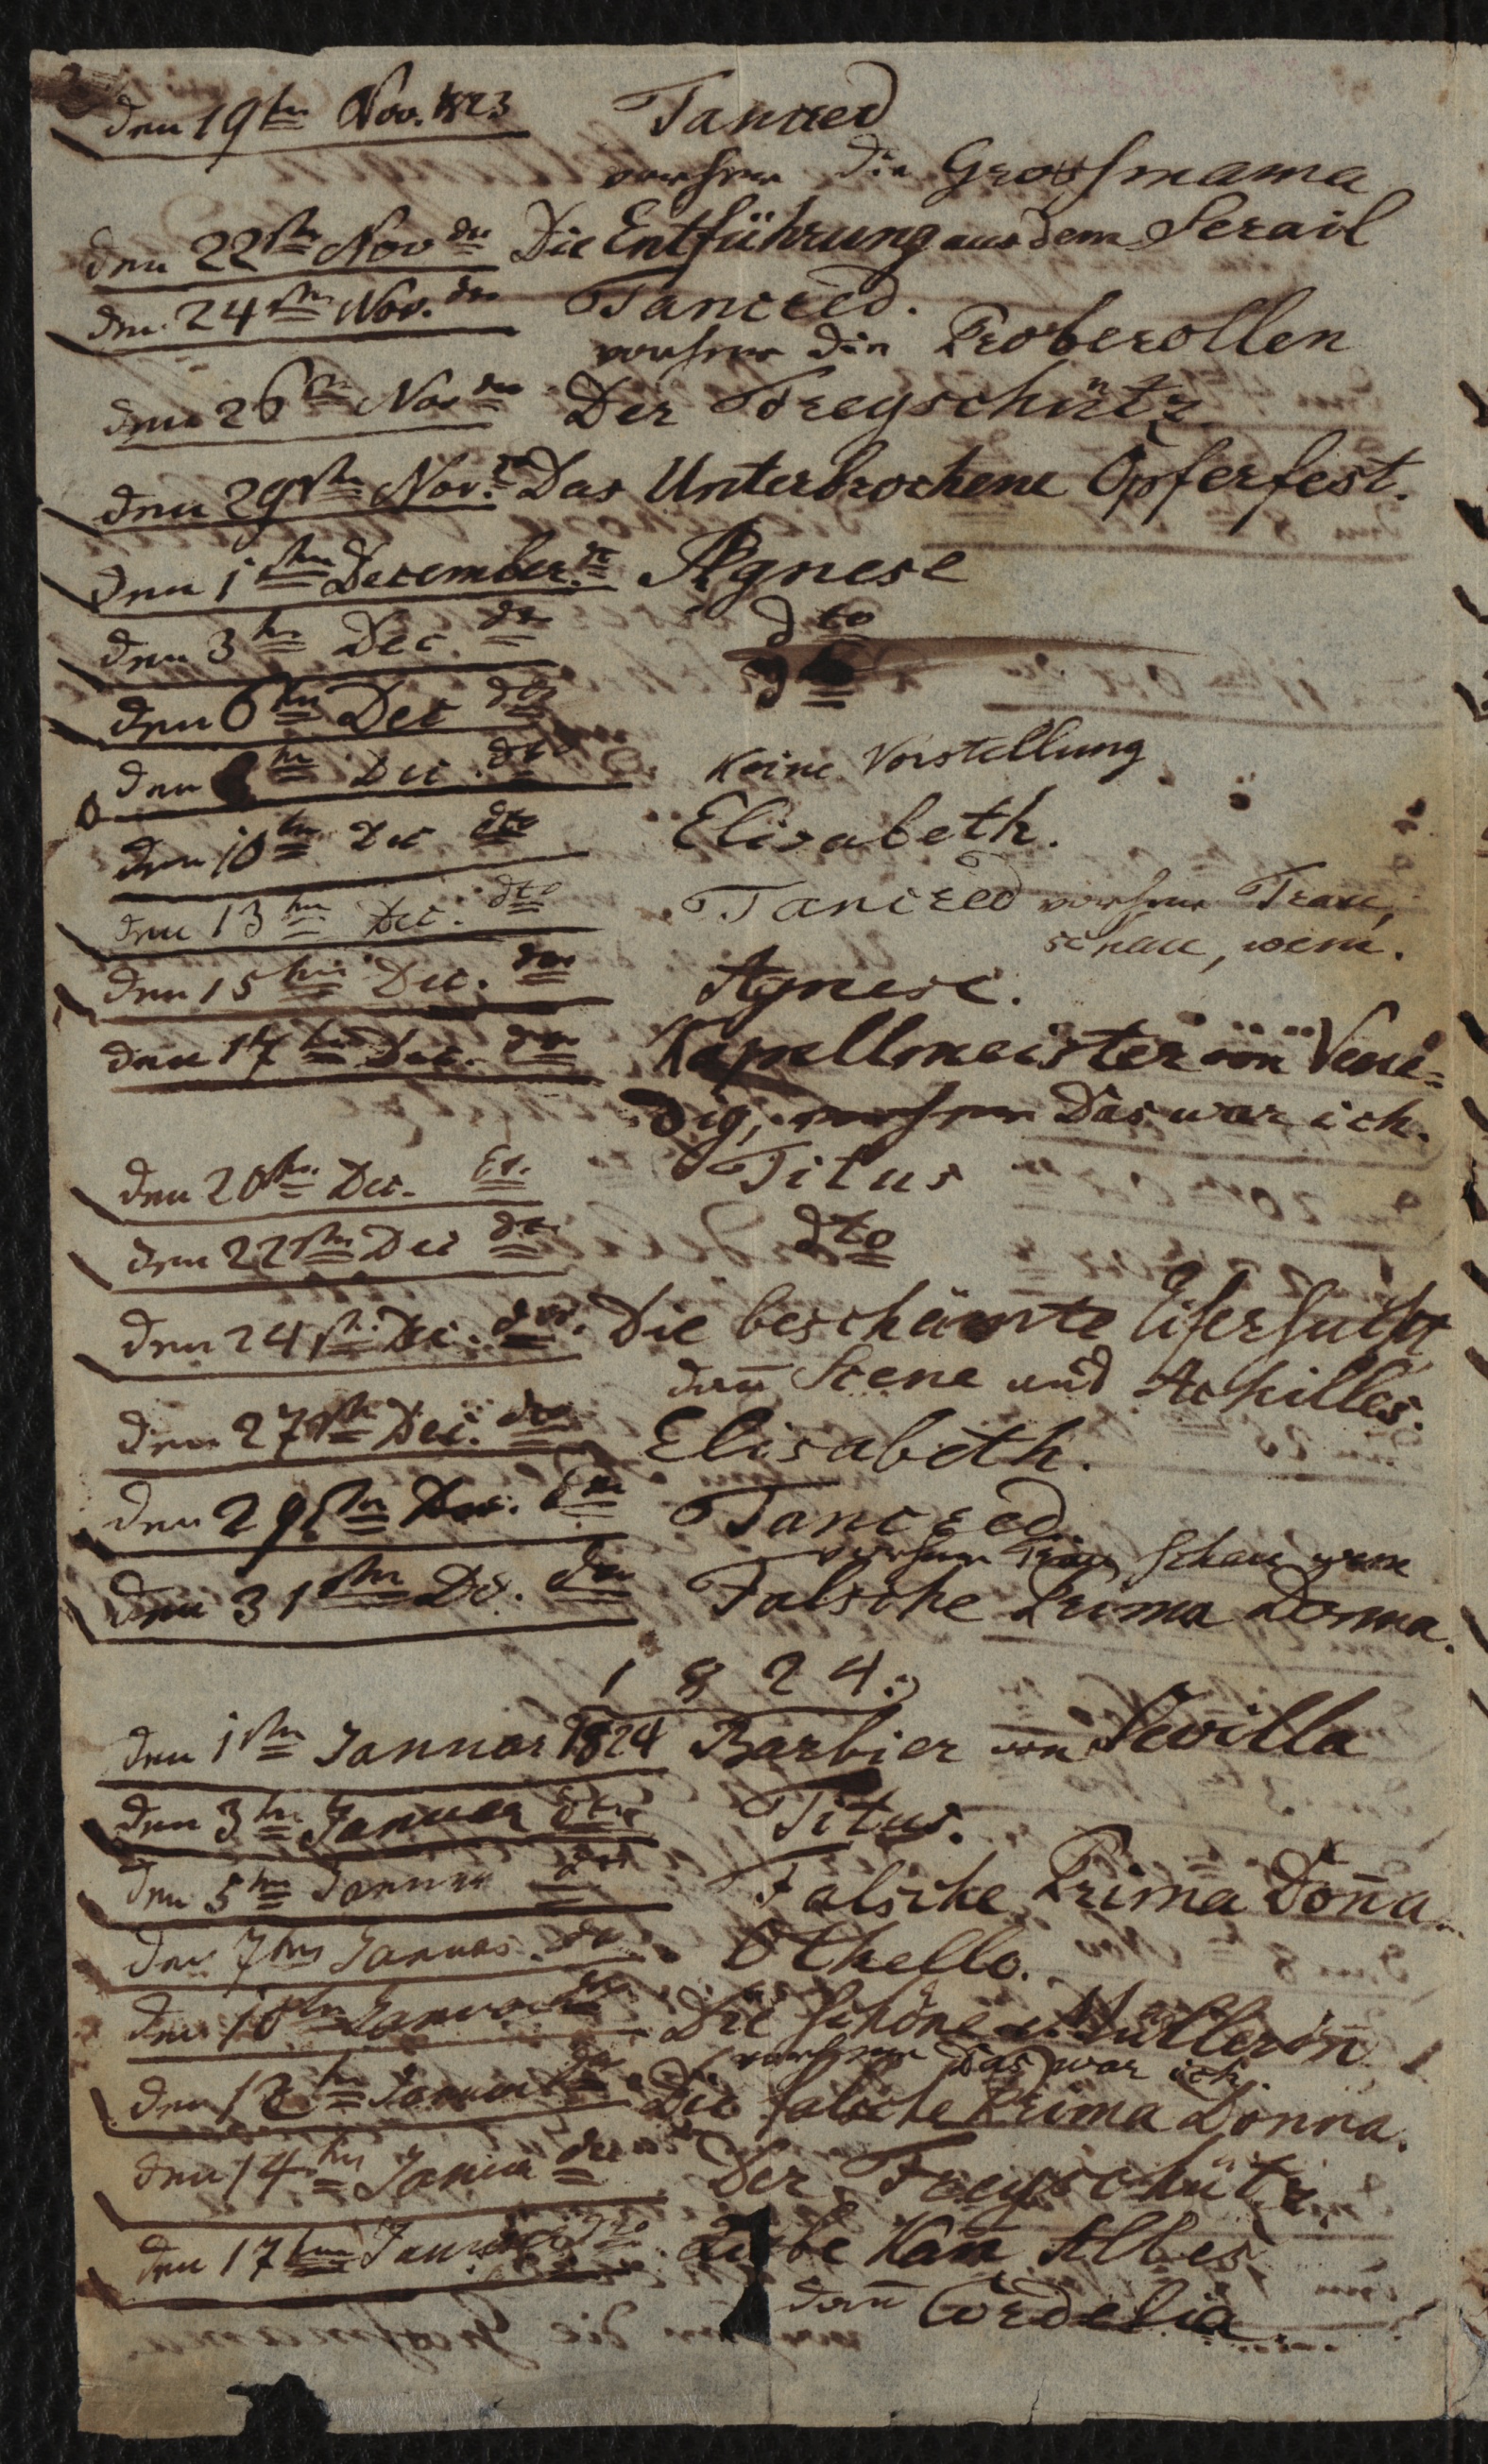 den 19ten Nov. 1823 Tancred
vorher die Grossmama
den 22ten Nov dto Die Entführung aus dem Serail
den 24ten Nov. dto Tancred.
vorher die Proberollen
den 26ten Nov dto Der Freyschütz
den 29ten Nov. dto Das Unterbrochene Opferfest.
den 1ten December dto Agnese
den 3ten Dec. dto dto
den 6ten Dec dto dto
den 8ten Dec. dto Keine Vorstellung
den 10ten Dec dto Elisabeth.
den 13ten Dec. dto Tancred vorher Trau,
schau, wem.
den 15ten Dec. dto Agnese.
den 17ten Dec. dto Kapellmeister von Vene=
dig, vorher Das war ich.
den 20ten Dec. Titus
den 22ten Dec dto dto
den 24ten Dec. dto. Die beschämte Eifersucht
dan̄ Scene und Achilles.
den 27ten Dec. dto Elisabeth.
den 29ten Dec. dto Tancred
vorher Trau Schau wem
den 31ten Dec. dto Falsche Prima Donna.
1824.
den 1ten Januar 1824 Barbier von Sevilla
den 3ten Januar dto Titus.
den 5ten Januar dto Falsche Prima Don̄a.
den 7ten Januar dto Othello.
den 10ten Januar dto Die schöne Müllerin
vorher Das war ich.
den 12ten Januar dto Die falsche Prima Donna.
den 14ten Januar dto Der Freyschütz
den 17ten Januar dto Liebe Kan̄ Alles
dan̄ Cordelia